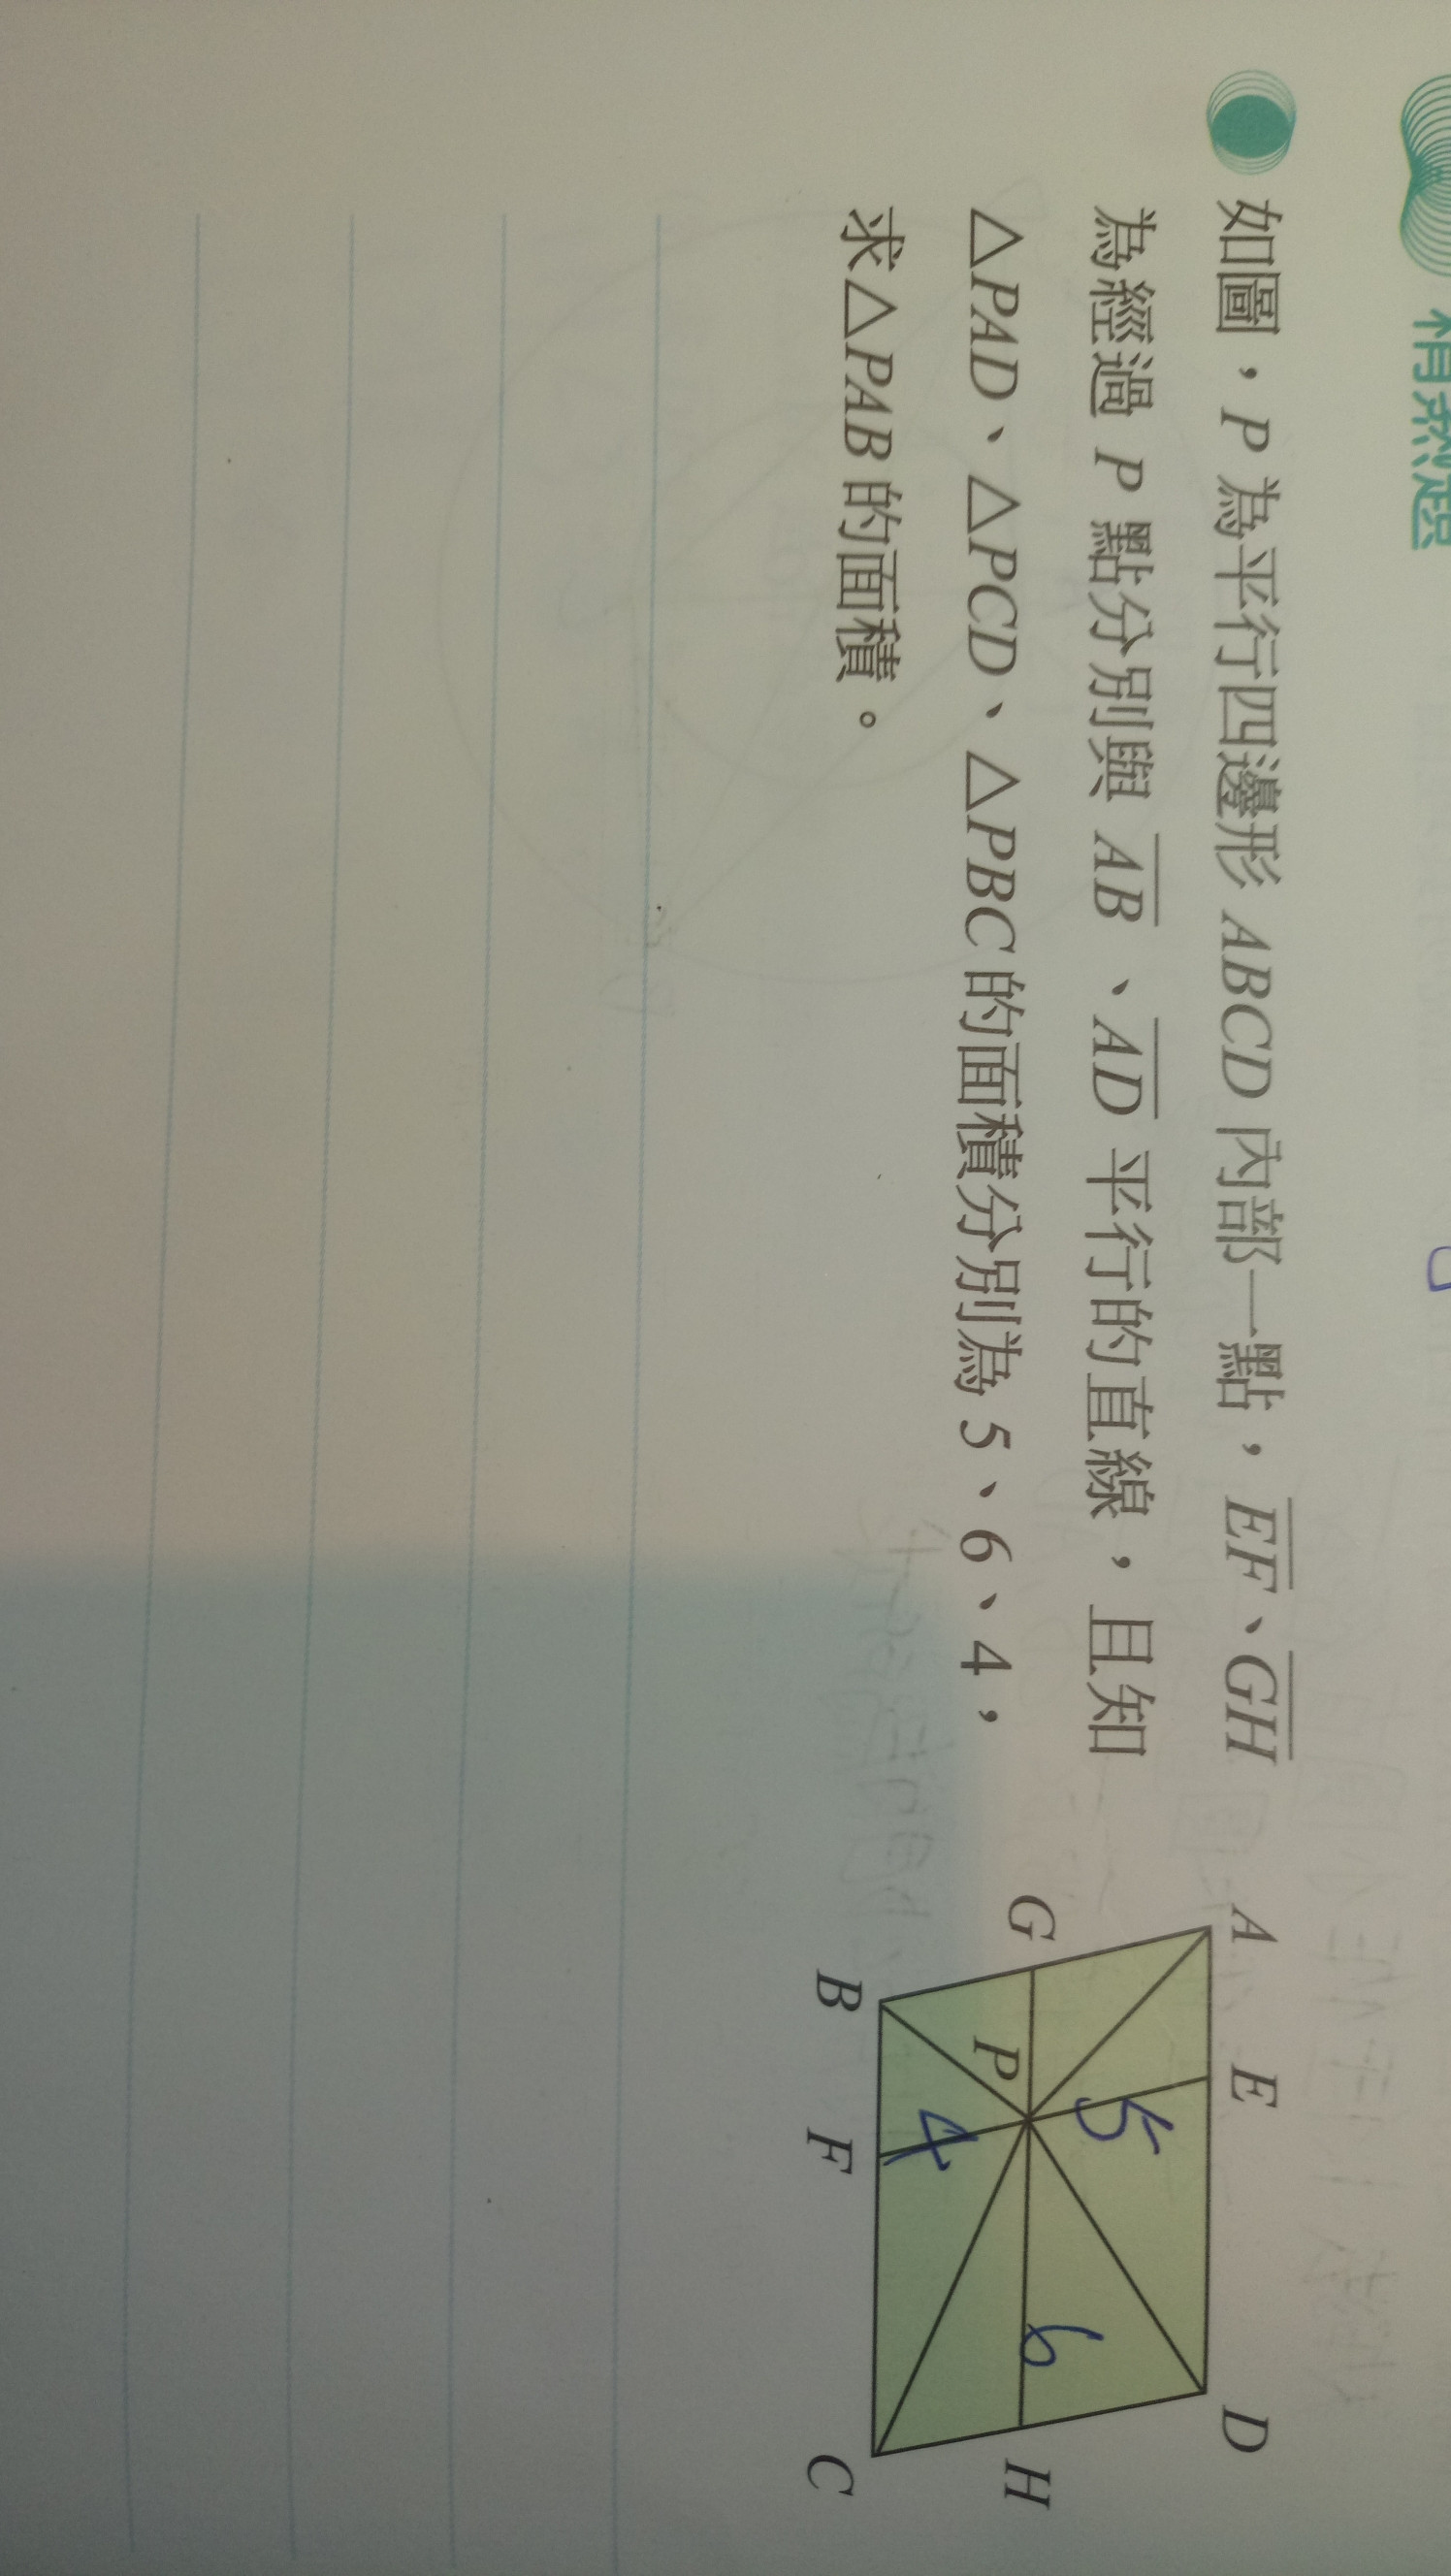 精熟題
如圖，P 為平行四邊形 ABCD 內部一點，EF、GH
為經過 P 點分別與 AB、AD 平行的直線，且知
△PAD、△PCD、△PBC 的面積分別為 5、6、4，
求△PAB 的面積。
A E D
5
G P 6 H
4
B F C